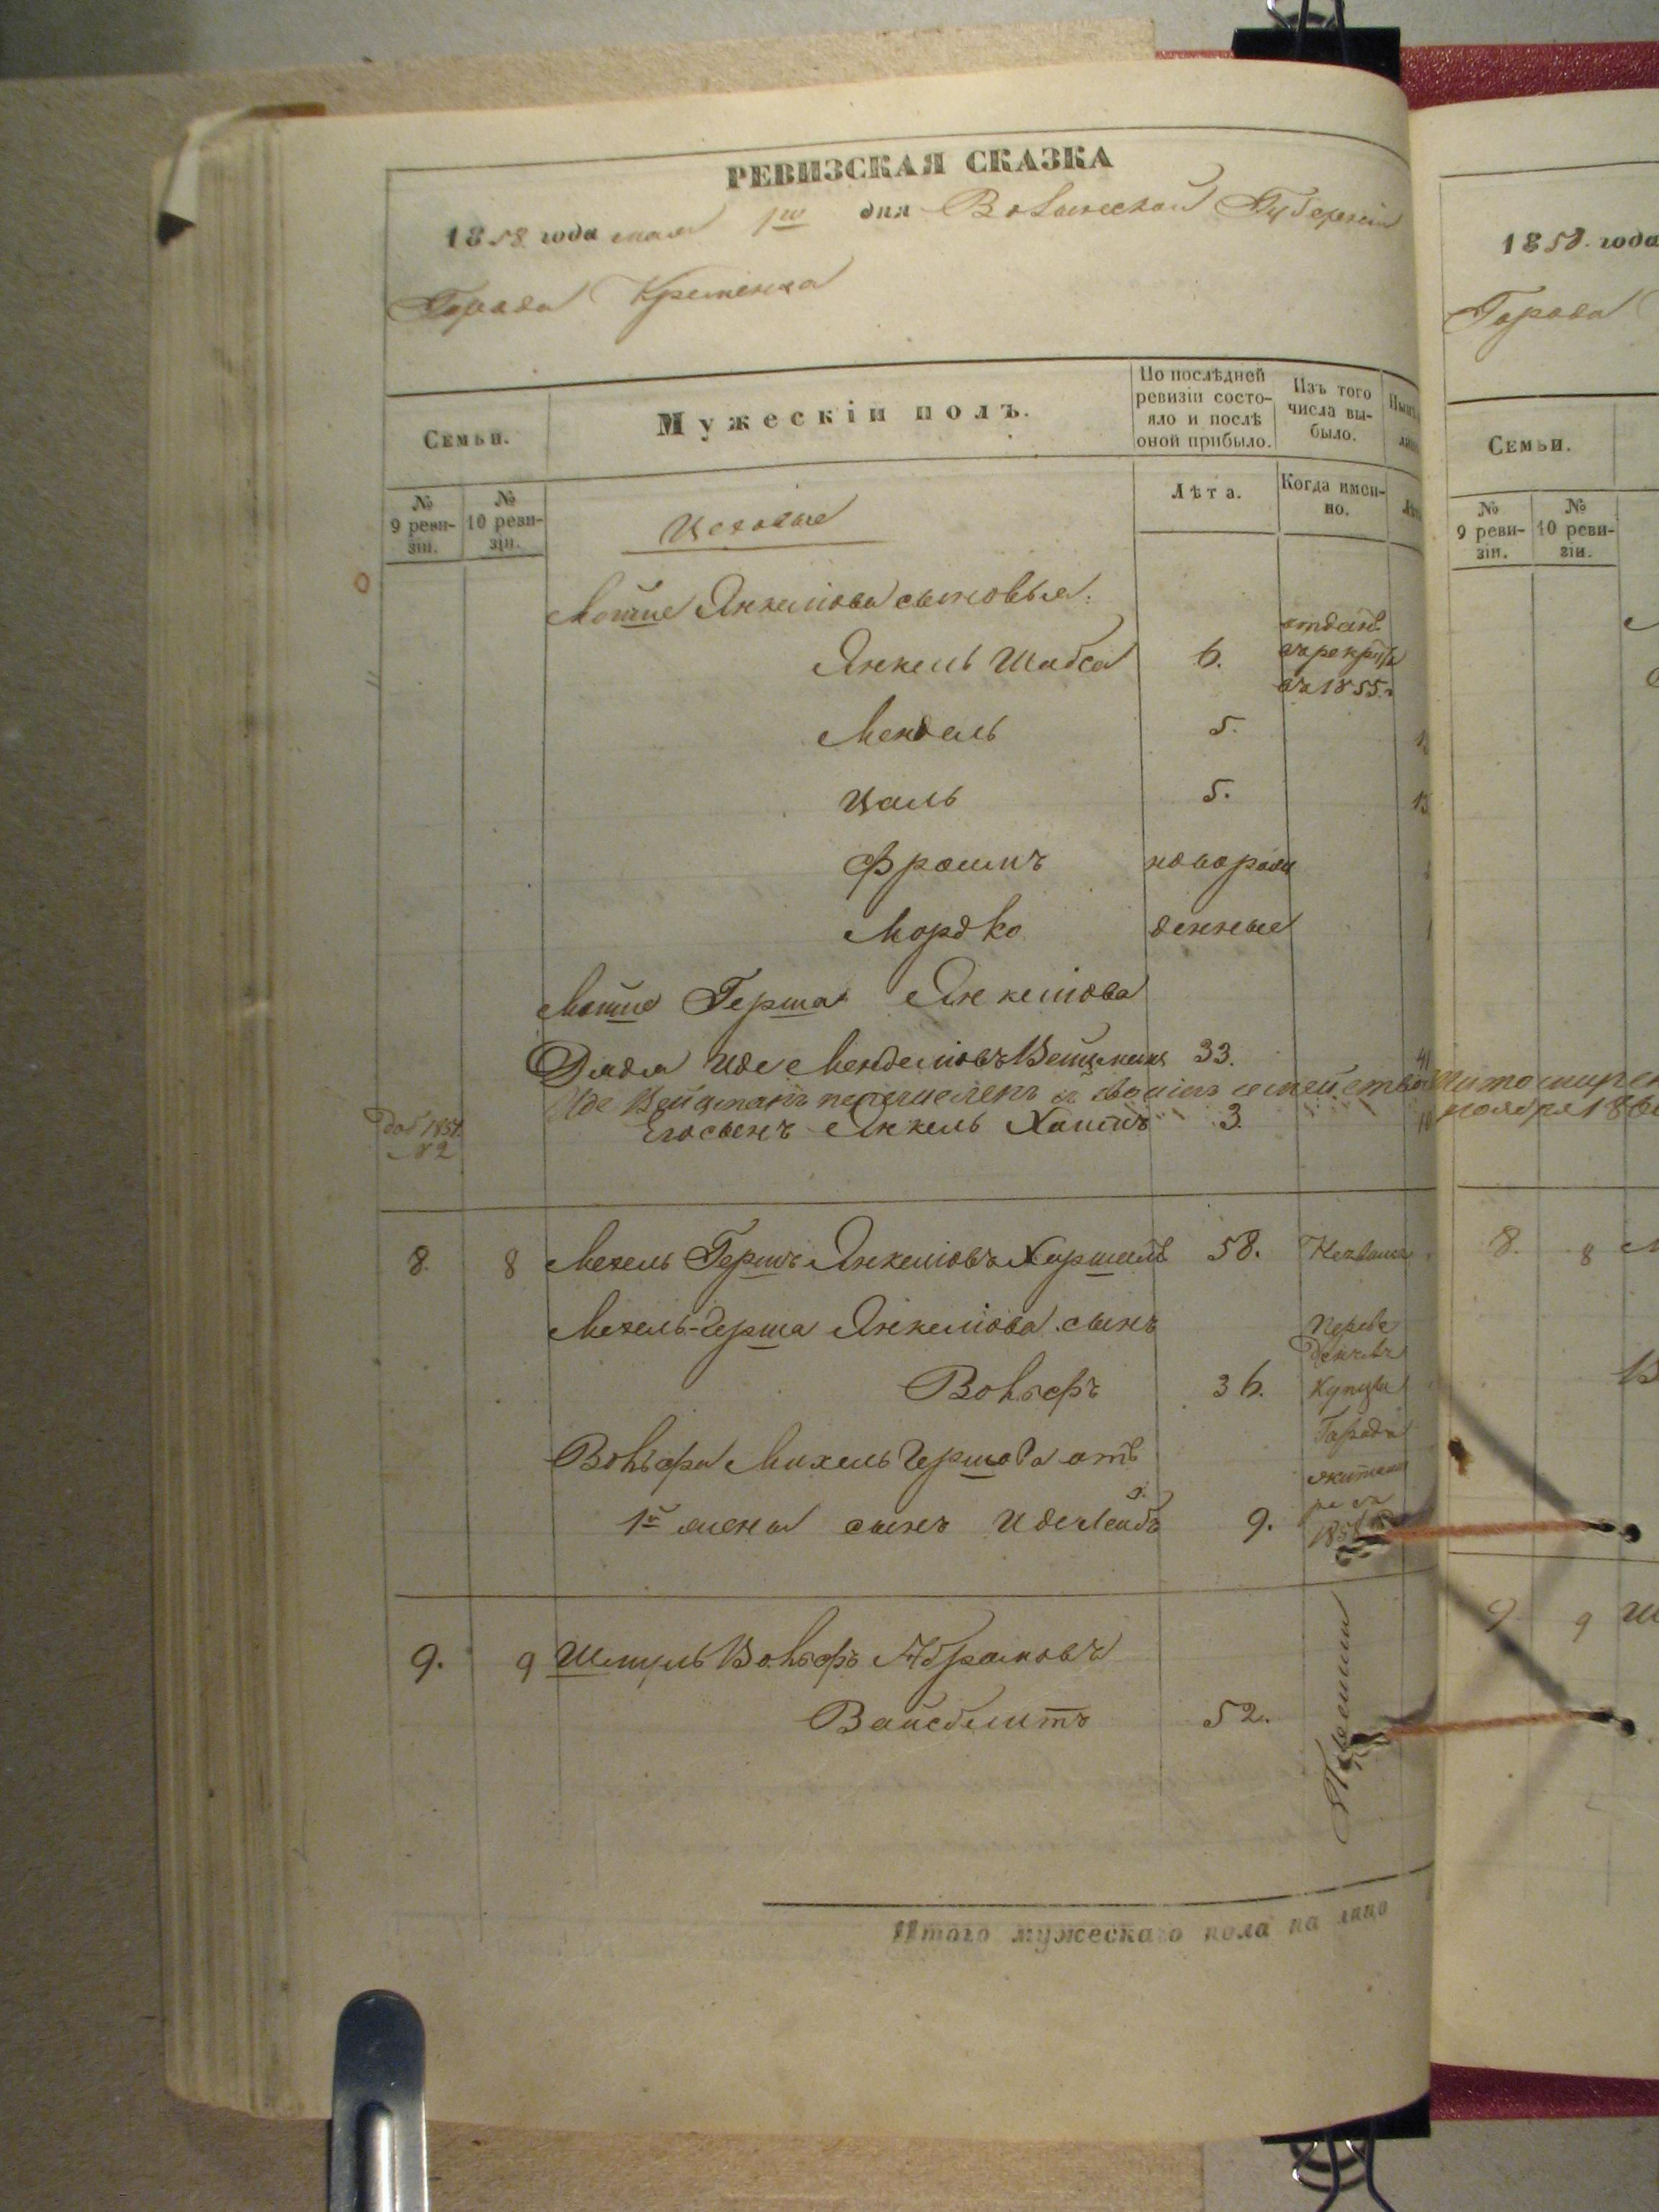 РЕВИЗСКАЯ СКАЗКА
1858 года мая 1го дня Волынской Губернии
Города Кременца
Семьи.
Мужескій полъ.
По послѣдней ревизіи состояло и послѣ оной прибыло.
Изъ того числа выбыло.
№ 9 ревизіи.
№ 10 ревизіи.
Лѣта.
Когда именно.
Цеховые
Мотие Янкелiова сыновья:
Янкель Шабса 6. отданъ въ рекруты въ 1855 г.
Мендель 5.
Цаль 5.
Фроимъ новорож
Мордко денные
Мотие Герша Янкелiова
Дядя Иде Менделiовъ Вейцманъ 33. 41
Иде Вейцманъ перечисленъ съ своимъ семействомъ
Его сынъ Янкель Хаимъ 3.
доб 1851 №2
8. 8 Мехель Гершъ Янкелiовъ 58.
Мехель-Герша Янкелiова сынъ
Вольфъ 36.
Переведенъ въ Купцы Города
Вольфа Михель Гершова отъ
1й жены сынъ Иде Лейбъ 9.
9. 9 Шмуль Вольфъ Абрамовъ
Вайсблитъ 52.
Итого мужескаго пола на лицо
1858. года
Города
Семьи.
№ 9 ревизіи.
№ 10 ревизіи.
ноября 186
8. 8
9 9